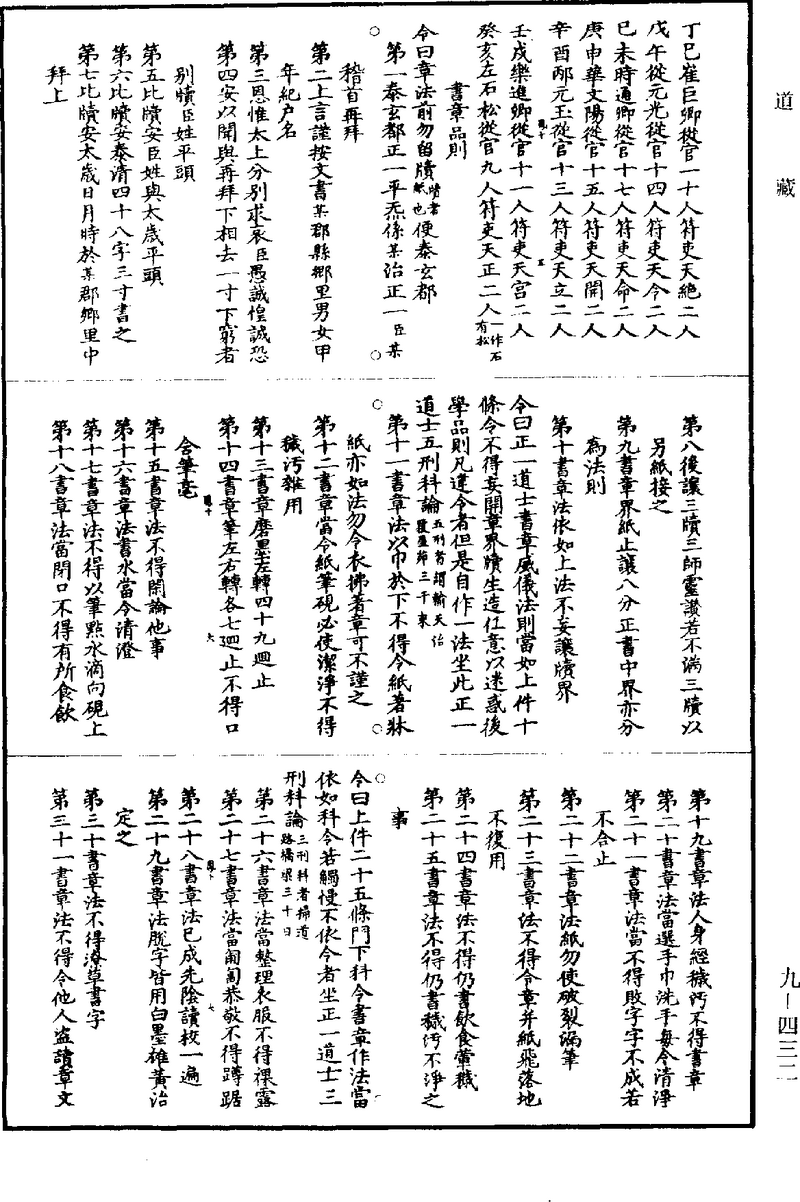 道藏
丁巳崔巨卿從官一十人符吏天絕二人
戊午從元光從官十四人符吏天令二人
己未時通卿從官十七人符吏天命二人
庚申華文陽從官十五人符吏天開二人
辛酉邴元玉從官十三人符吏天立二人
壬戌樂進卿從官十一人符吏天宫二人
癸亥左石松從官九人符吏天正二人一作石有松
書章品則
令曰章法前勿留牘牘者紙也便泰玄都
第一泰玄都正一平炁係某治正一臣某
稽首再拜
第二上言謹按文書某郡縣鄉里男女甲
年紀户名
第三恩惟太上分別求哀臣愚誠惶誠恐
第四安以聞與再拜下相去一寸下窮者
别牘臣姓平頭
第五比牘安臣姓與太歲平頭
第六比牘安泰清四十八字三寸書之
第七比牘安太歲日月時於某郡鄉里中
拜上
第八後讓三牘三師靈讚若不滿三牘以
另紙接之
第九書章界紙止讓八分正書中界亦分
為法則
第十書章法依如上法不妄讓牘界
令曰正一道士書章威儀法則當如上件十
條令不得妄開章界牘生造任意以迷惑後
學品則凡違令者但是自作一法坐此正一
道士五刑科論五刑者謂輸天治覆屋茆三千束
第十一書章法以巾於下不得令紙著牀
紙亦如法勿令衣拂著章可不謹之
第十二書章當令紙筆硯必使潔淨不得
穢汚雜用
第十三書章磨墨左轉四十九迴止
第十四書章筆左右轉各七迴止不得口
含筆毫
第十五書章法不得閒論他事
第十六書章法書水當令清澄
第十七書章法不得以筆點水滴向硯上
第十八書章法當閉口不得有所食飲
第十九書章法人身經穢汚不得書章
第二十書章法當選手巾洗手每令清淨
第二十一書章法當不得敗字字不成若
不合止
第二十二書章法紙勿使破裂漏筆
第二十三書章法不得令章并紙飛落地
不復用
第二十四書章法不得仍書飲食葷穢
第二十五書章法不得仍書穢汚不淨之
事
令曰上件二十五條門下科令書章作法當
依如科令若觸慢不依令者坐正一道士三
刑科論三刑科者掃道路橋梁三十日
第二十六書章法當整理衣服不得裸露
第二十七書章法當匍匐恭敬不得蹲踞
第二十八書章法已成先陰讀校一遍
第二十九書章法脫字皆用白墨雄黃治
定之
第三十書章法不得濅草書字
第三十一書章法不得令他人盜讀章文
九–四三二